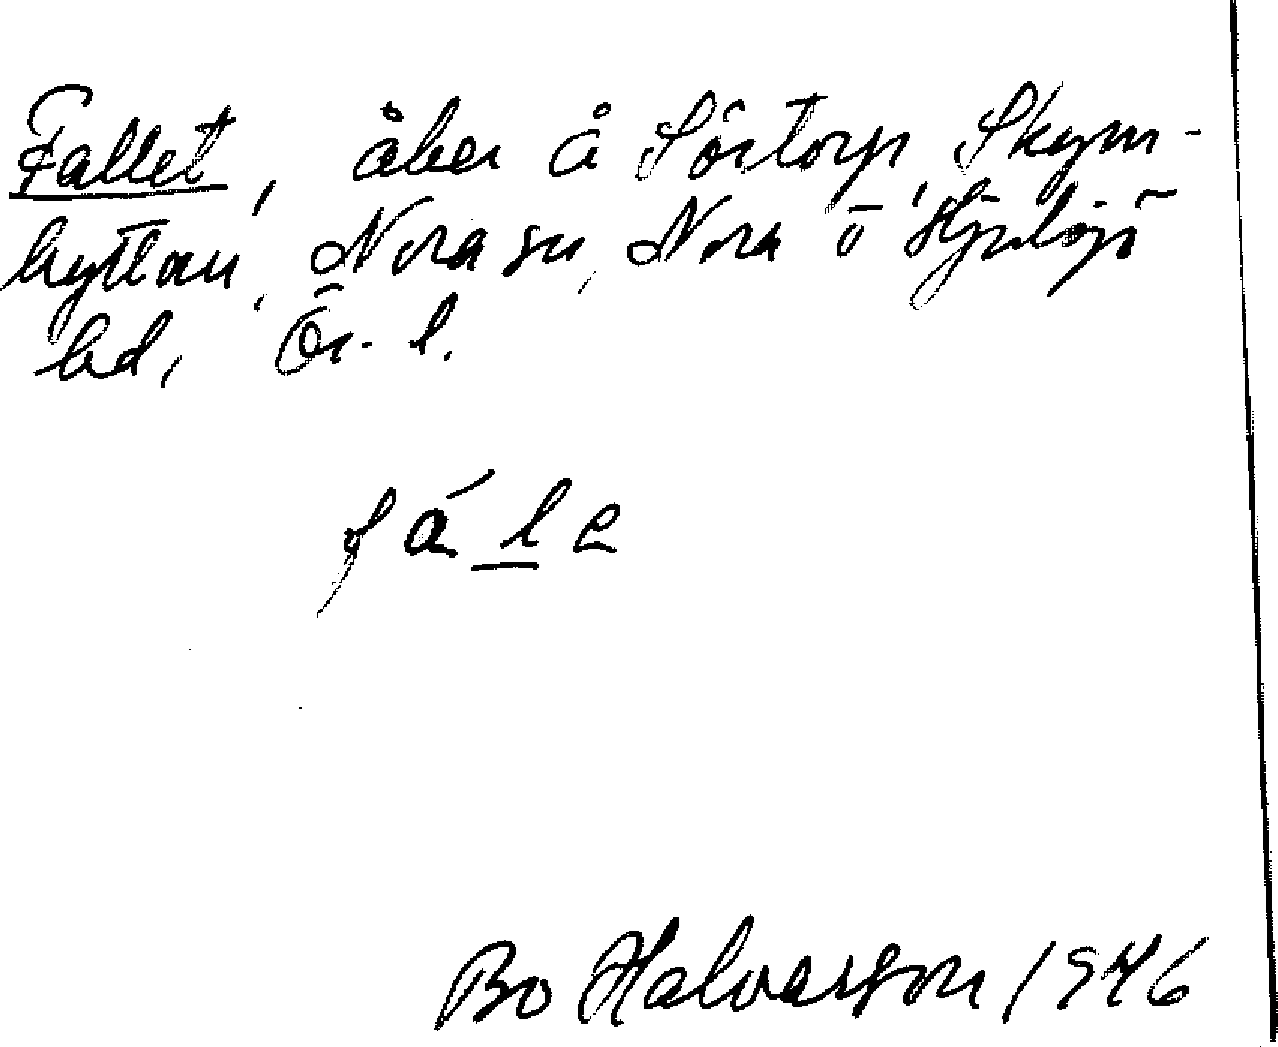 Fallet, åker å Sörtorp, Skym-
hyttan, Nora sn, Nora o Hjulsjö
bd, Ör. l.
fá l e
Bo Halvarsson 1946